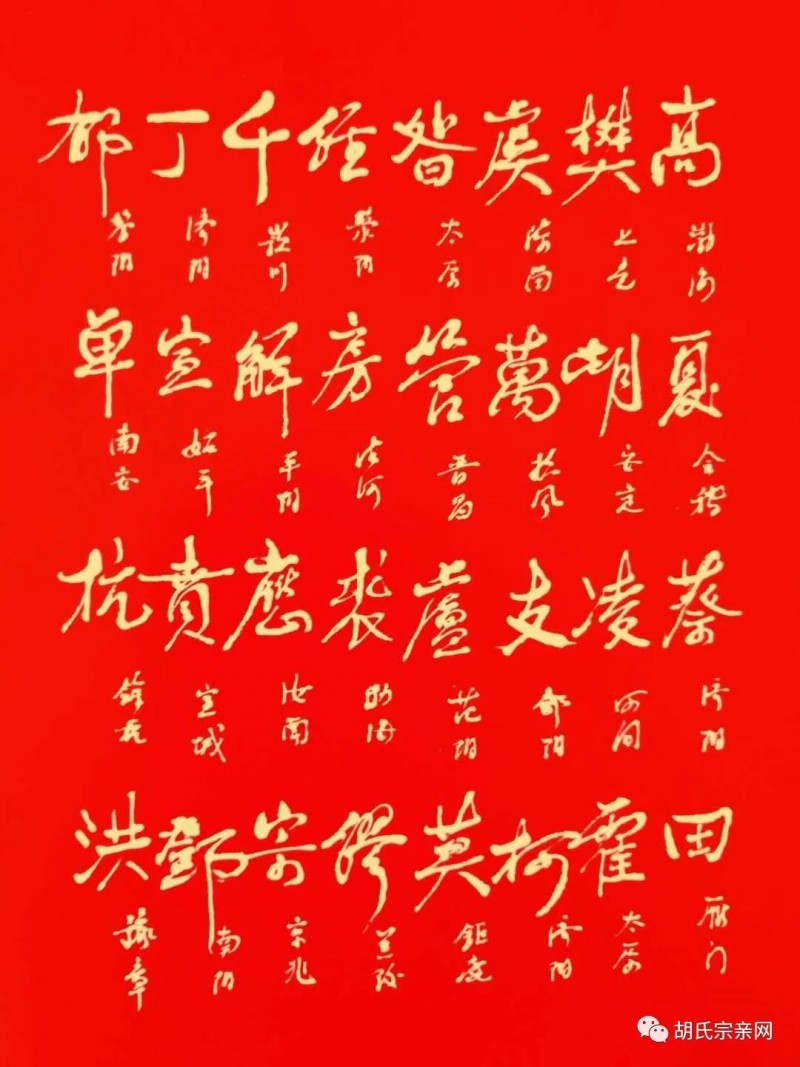 高 渤海 夏 会稽 蔡 济阳 田 雁门
樊 上党 胡 安定 凌 河间 霍 太原
虞 萬 扶风 支 柯 济阳
昝 太原 管 晋昌 盧 范阳 莫 鉅鹿
经 荥阳 房 清河 裘 缪 兰陵
千 解 平阳 應 汝南 京兆
丁 济阳 宣 始平 賁 宣城 鄧 南阳
郁 单 南安 杭 洪 豫章
胡氏宗亲网